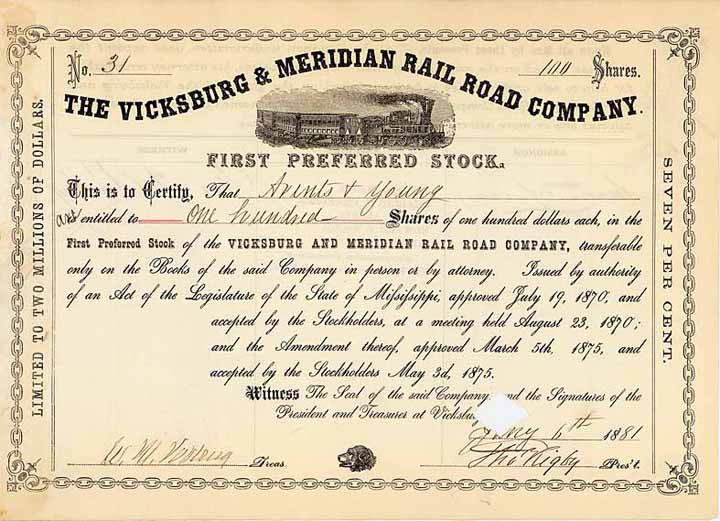 No. 31 100 Shares.
THE VICKSBURG & MERIDIAN RAIL ROAD COMPANY.
FIRST PREFERRED STOCK.
This is to Certify, That & Young
are entitled to One hundred Shares of one hundred dollars each, in the
First Preferred Stock of the VICKSBURG AND MERIDIAN RAIL ROAD COMPANY, transferable
only on the Books of the said Company in person or by attorney. Issued by authority
of an Act of the Legislature of the State of Mississippi, approved July 19, 1870, and
accepted by the Stockholders, at a meeting held August 23, 1870;
and the Amendment thereof, approved March 5th, 1875, and
accepted by the Stockholders May 3d, 1875.
Witness The Seal of the said Company, and the Signatures of the
President and Treasurer at Vicksbu
6th 1881
W. M. Treas. Tho Rigby Pres't.
LIMITED TO TWO MILLIONS OF DOLLARS.
SEVEN PER CENT.